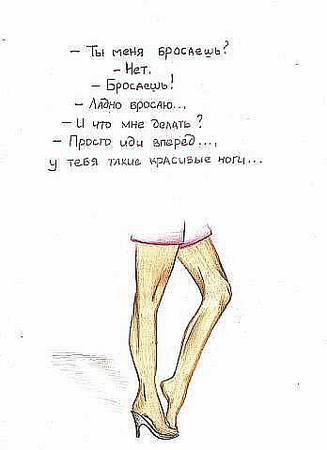 – Ты меня бросаешь?
– Нет.
– Бросаешь!
– Ладно бросаю...
– И что мне делать?
– Просто иди вперед...,
у тебя такие красивые ноги...